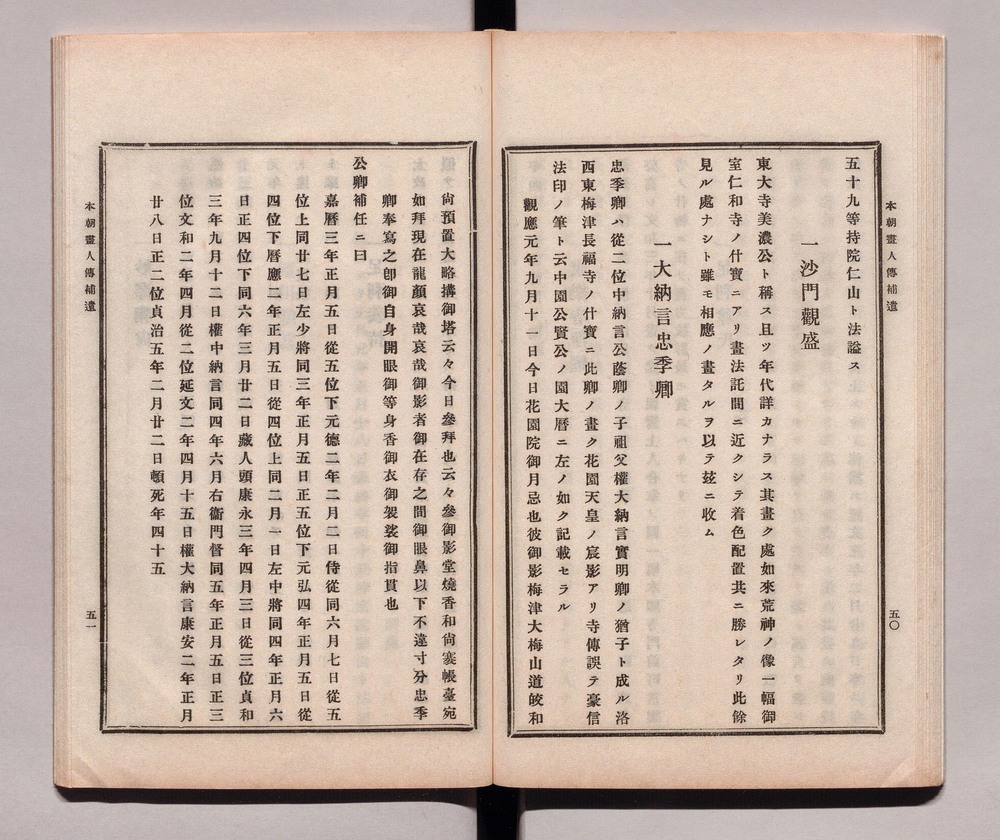 本朝畫人傳補遺
五〇
五十九等持院仁山ト法謚ス
一沙門觀盛
東大寺美濃公ト稱ス且ツ年代詳カナラス其畫ク處如來荒神ノ像一幅御
室仁和寺ノ什寶ニアリ畫法託間ニ近クシテ着色配置共ニ勝レタリ此餘
見ル處ナシト雖モ相應ノ畫タルヲ以テ玆ニ收ム
一大納言忠季卿
忠季卿ハ從二位中納言公蔭卿ノ子祖父權大納言實明卿ノ猶子ト成ル洛
西東梅津長福寺ノ什寶ニ此卿ノ畫ク花園天皇ノ宸影アリ寺傳誤テ豪信
法印ノ筆ト云中園公賢公ノ園大曆ニ左ノ如ク記載セラル
觀應元年九月十一日今日花園院御月忌也彼御影梅津大梅山道皎和
尙預置大略搆御塔云々今日參拜也云々參御影堂燒香和尙褰帳臺宛
如拜現在龍顏哀哉哀哉御影者御在存之間御眼鼻以下不違寸分忠季
卿奉寫之卽御自身開眼御等身香御衣御袈裟御指貫也
公卿補任ニ曰
嘉曆三年正月五日從五位下元德二年二月二日侍從同六月七日從五
位上同廿七日左少將同三年正月五日正五位下元弘四年正月五日從
四位下曆應二年正月五日從四位上同二月一日左中將同四年正月六
日正四位下同六年三月廿二日藏人頭康永三年四月三日從三位貞和
三年九月十二日權中納言同四年六月右衞門督同五年正月五日正三
位文和二年四月從二位延文二年四月十五日權大納言康安二年正月
廿八日正二位貞治五年二月廿二日頓死年四十五
本朝畫人傳補遺
五一